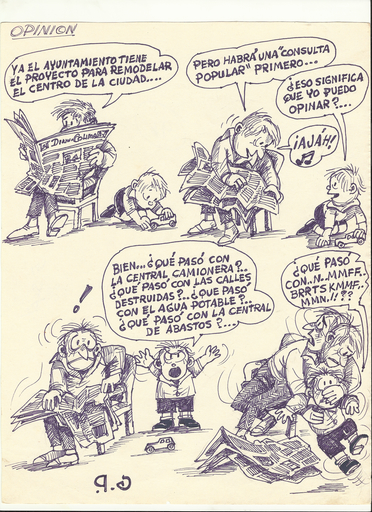 OPINION
YA EL AYUNTAMIENTO TIENE
EL PROYECTO PARA REMODELAR
EL CENTRO DE LA CIUDAD....
PERO HABRÁ UNA "CONSULTA
POPULAR" PRIMERO...
¡AJÁH!
¿ESO SIGNIFICA
QUE YO PUEDO
OPINAR?...
BIEN...¿QUÉ PASÓ CON
LA CENTRAL CAMIONERA?..
¿QUE PASÓ CON LAS CALLES
DESTRUIDAS?...¿QUE PASÓ
CON EL AGUA POTABLE?...
¿QUE PASÓ CON LA CENTRAL
DE ABASTOS?...
!
¿QUE PASÓ
CON..N..MMFF..
BRRTS KMMF..
MMN.!!??